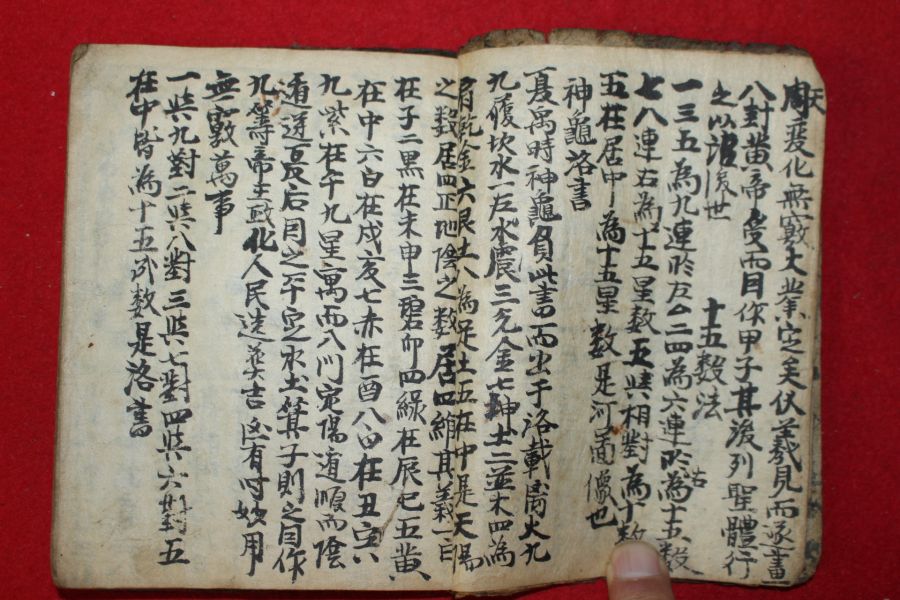 周變化無窮大業定矣伏羲見而逐畫
八封黄帝受而因作甲子其後列聖體行
之以詔後世 十五數法
一三五為九連於左二四為六連於右為十五數
七八連右為十五星數五與相對為十數
五在居中為十五星數是河圖像也
神龜洛書
夏禹時神龜負此書而出于洛載離火九
九履坎水一左水震三兌金七坤土二並木四為
肩乾金六艮土八為足土五在中是天陽
之數居四正地陰之數居四維其義一白
在子二黑在未申三碧卯四綠在辰巳五黄
在中六白在戌亥七赤在酉八白在丑寅
九紫在午九星寓而八門定陽道順而陰
道逆夏后因之平定水土箕子則之自作
九籌帝王或化人民造葬吉凶有時妙用
無窮萬事
一與九對二與八對三與七對四與六對五
在中皆為十五此數是洛書